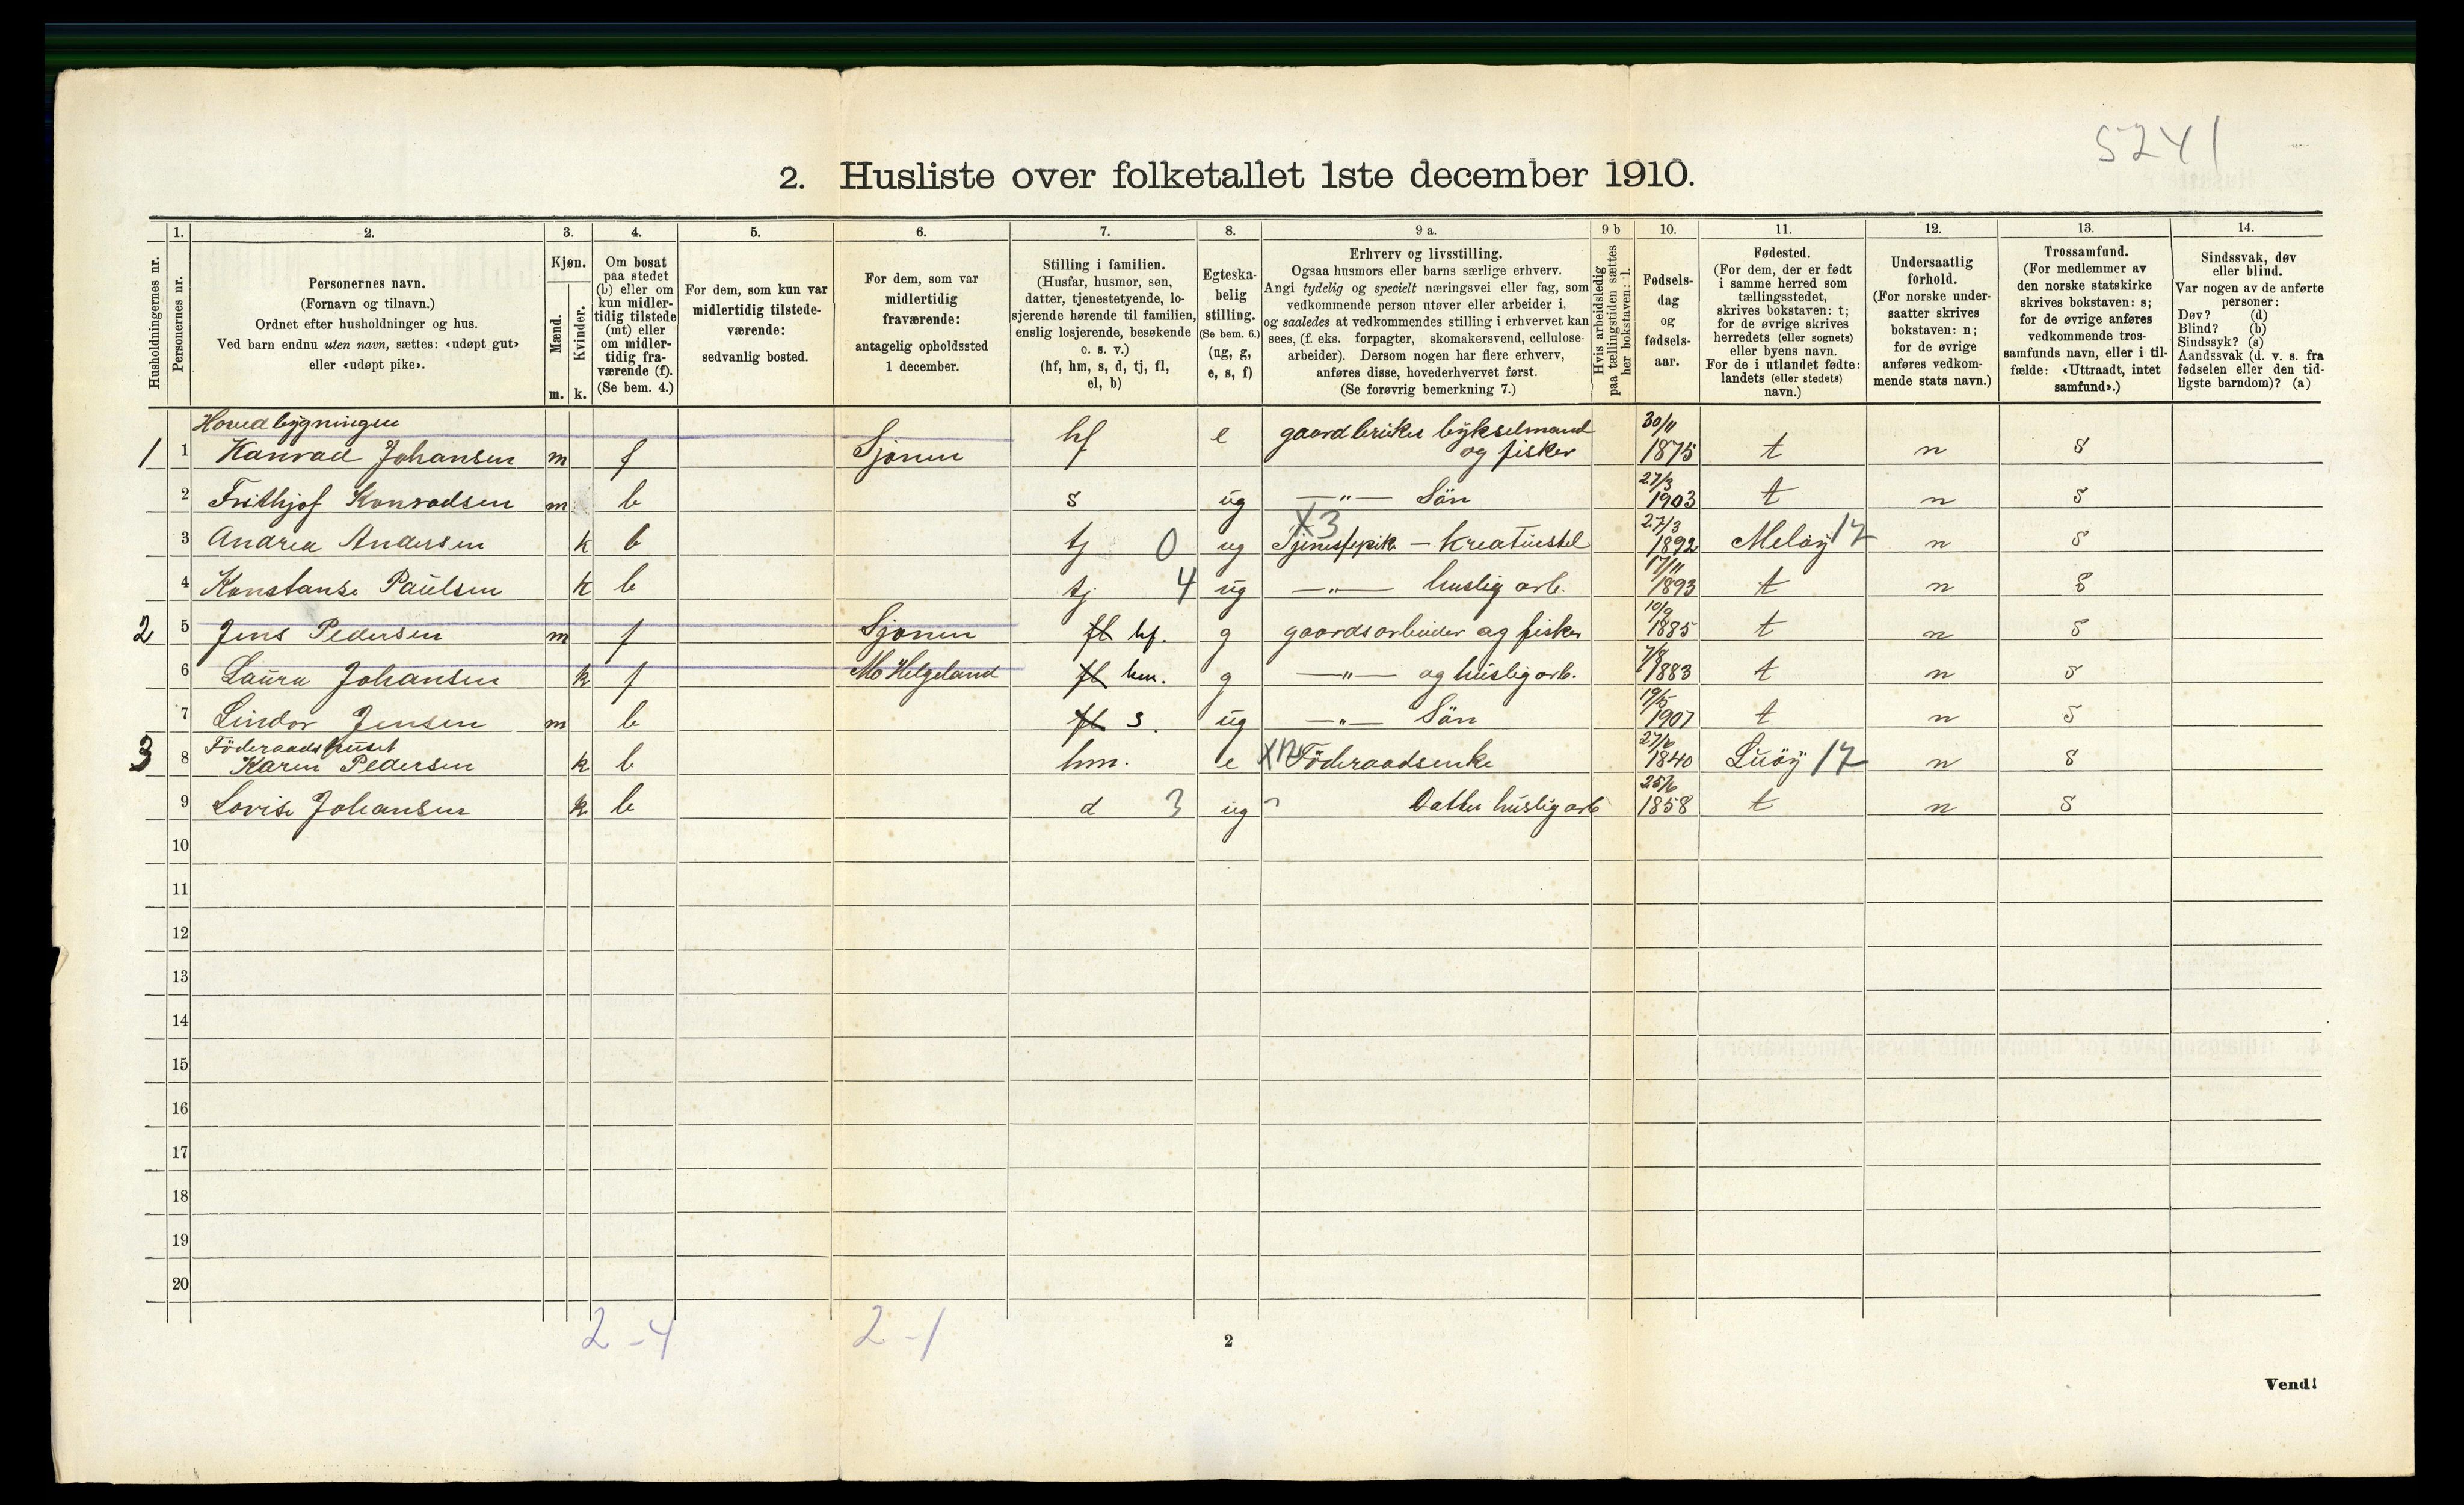 5241
2. Husliste over folketallet 1ste december 1910.
Husholdningernes nr.
1. Personernes nr.
2. Personernes navn.
(Fornavn og tilnavn.)
Ordnet efter husholdninger og hus.
Ved barn endnu uten navn, sættes: «udøpt gut»
eller «udøpt pike».
3. Kjøn.
Mænd. Kvinder.
m. k.
4. Om bosat
paa stedet
(b) eller om
kun midler-
tidig tilstede
(mt) eller
om midler-
tidig fra-
værende (f).
(Se bem. 4.)
5. For dem, som kun var
midlertidig tilstede-
værende:
sedvanlig bosted.
6. For dem, som var
midlertidig
fraværende:
antagelig opholdssted
1 december.
7. Stilling i familien.
(Husfar, husmor, søn,
datter, tjenestetyende, lo-
sjerende hørende til familien,
enslig losjerende, besøkende
o. s. v.)
(hf, hm, s, d, tj, fl,
el, b)
8. Egteska-
belig
stilling.
(Se bem. 6.)
(ug, g,
e, s, f)
9 a. Erhverv og livsstilling.
Ogsaa husmors eller barns særlige erhverv.
Angi tydelig og specielt næringsvei eller fag, som
vedkommende person utøver eller arbeider i,
og saaledes at vedkommendes stilling i erhvervet kan
sees, (f. eks. forpagter, skomakersvend, cellulose-
arbeider). Dersom nogen har flere erhverv,
anføres disse, hovederhvervet først.
(Se forøvrig bemerkning 7.)
9 b Hvis arbeidsledig
paa tællingstiden sættes
her bokstaven: l.
10. Fødsels-
dag
og
fødsels-
aar.
11. Fødested.
(For dem, der er født
i samme herred som
tællingsstedet,
skrives bokstaven: t;
for de øvrige skrives
herredets (eller sognets)
eller byens navn.
For de i utlandet fødte:
landets (eller stedets)
navn.)
12. Undersaatlig
forhold.
(For norske under-
saatter skrives
bokstaven: n;
for de øvrige
anføres vedkom-
mende stats navn.)
13. Trossamfund.
(For medlemmer av
den norske statskirke
skrives bokstaven: s;
for de øvrige anføres
vedkommende tros-
samfunds navn, eller i til-
fælde: «Uttraadt, intet
samfund».)
14. Sindssvak, døv
eller blind.
Var nogen av de anførte
personer:
Døv? (d)
Blind? (b)
Sindssyk? (s)
Aandssvak (d. v. s. fra
fødselen eller den tid-
ligste barndom)? (a)
Hovedbygningen
1 1 Konrad Johansen m f Sjonen hf e gaardbruker bykselmand og fisker 30/11 1875 t n s
2 Frithjof Konradsen m b s ug —"— Sön 27/3 1903 t n s
X3
3 Andrea Andersen k b tj 0 ug Tjenestepik – kreaturstel 27/3 1892 Melöy 17 n s
4 Konstanse Paulsen k b tj 4 ug —"— huslig arb. 17/11 1893 t n s
2 5 Jens Pedersen m f Sjonen fl hf. g gaardsarbeider og fisker 10/9 1885 t n s
6 Laura Johansen k f Mo Helgeland fl hm. g —"— og huslig arb. 7/8 1883 t n s
7 Lindor Jensen m b fl s. ug —"— Sön 19/5 1907 t n s
Föderaadshuset
3 8 Karen Pedersen k b hm. e Föderaadsenke 27/6 1840 Luöy 17 n s
9 Lovise Johansen k b d 3 ug Datter huslig arb 25/6 1858 t n s
10
11
12
13
14
15
16
17
18
19
20
2-4 2-1
2
Vend!